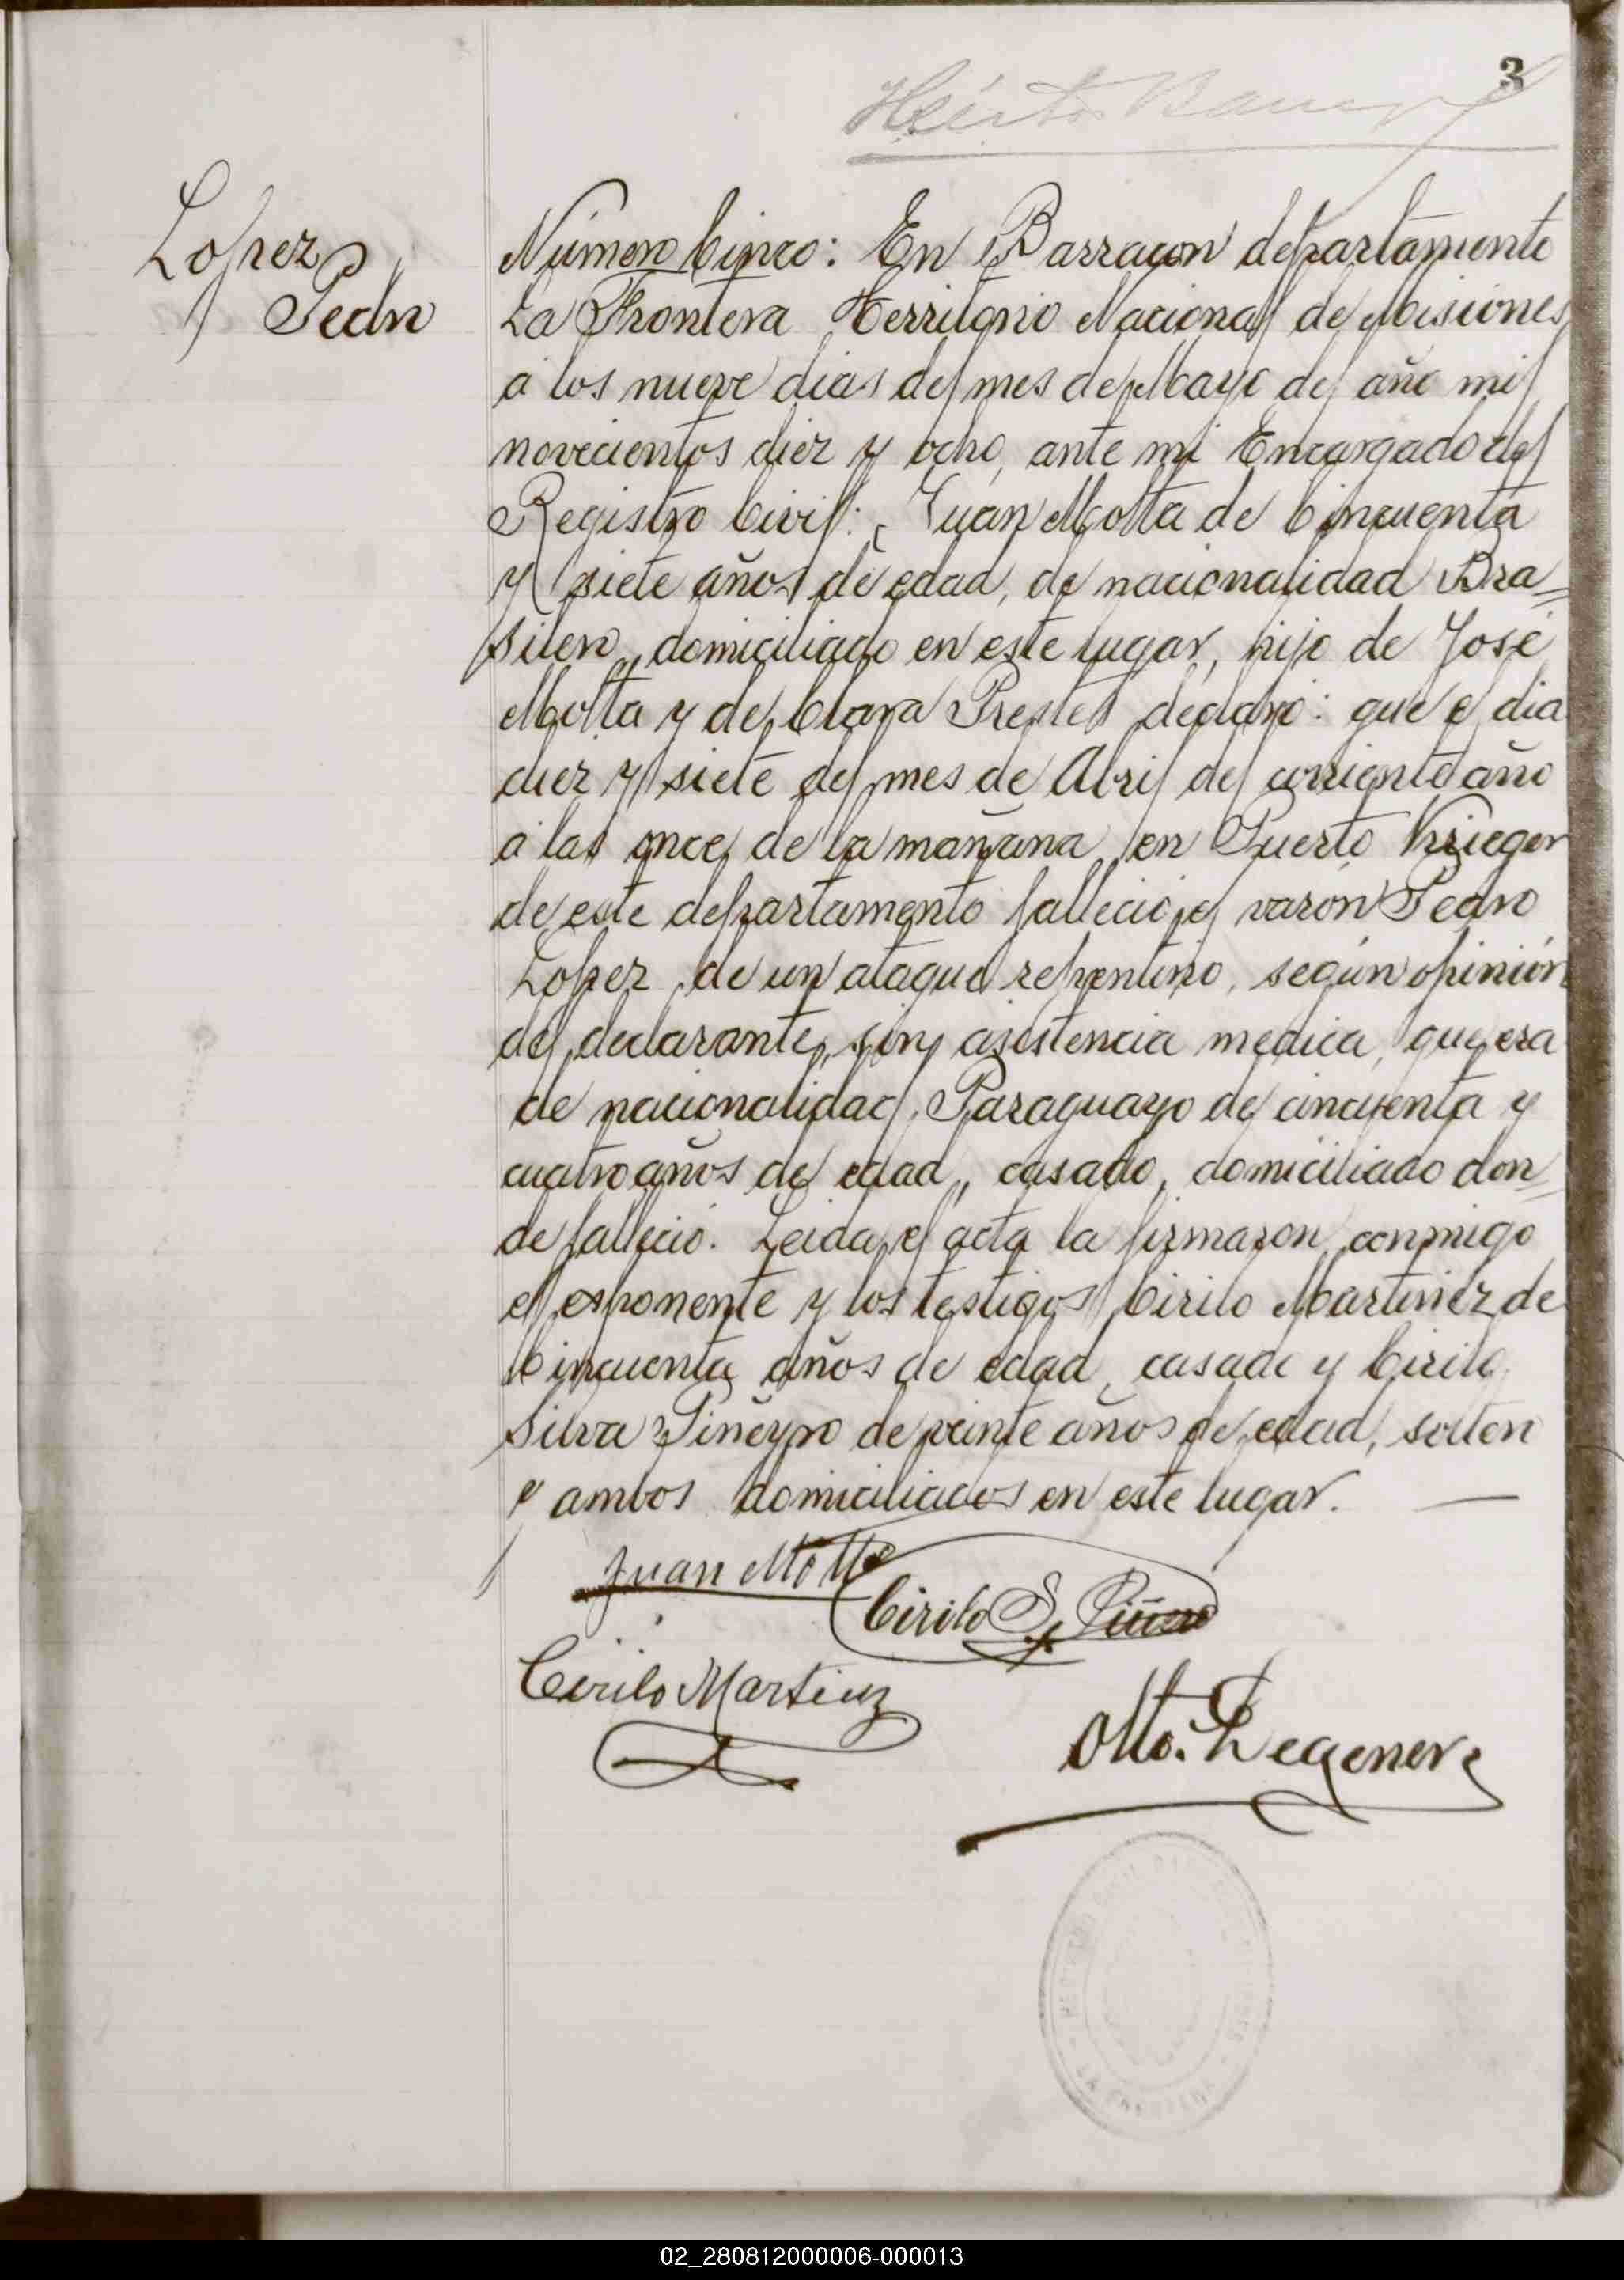 3
Héctor
Lopez
Pedro
Número Cinco: En Barracon departamento
La Frontera Territorio Nacional de Misiones
á los nueve dias del mes de Mayo del año mil
novecientos diez y ocho, ante mi Encargado del
Registro Civil: Juan Motta de Cincuenta
y siete años de edad, de nacionalidad Bra=
silero, domiciliado en este lugar, hijo de José
Motta y de Clara Prestes declaró: que el dia
diez y siete del mes de Abril del corriente año
á las once de la mañana en Puerto Krieger
de este departamento falleció el varón Pedro
Lopez de un ataque repentino, según opinión
del declarante, sin asistencia medica, que era
de nacionalidad Paraguayo de cincuenta y
cuatro años de edad, casado, domiciliado don=
de falleció. Leida el acta la firmaron conmigo
el exponente y los testigos Cirilo Martinez de
Cincuenta años de edad, casado y Cirilo
Silva Piñeyro de veinte años de edad, soltero
y ambos domiciliados en este lugar.
Juan Motta
Cirilo S. Piñero
Cirilo Martinez
Otto Degener
REGISTRO CIVIL
MISIONES
LA FRONTERA
02_280812000006-000013